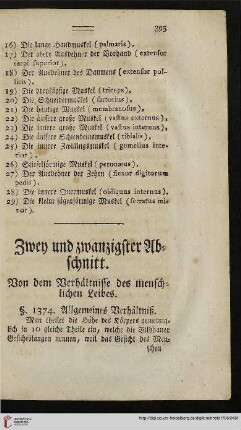 395
16) Die lange Handmuskel (palmaris).
17) Der obere Ausdehner der Vorhand (extensor
carpi superior).
18) Der Ausdehner des Daumens (extensor pol-
licis).
19) Die dreyköpfige Muskel (triceps).
20) Die Schneidermuskel (sartorius).
21) Die häutige Muskel (membranosus).
22) Die äussere große Muskel (vastus externus).
23) Die innere große Muskel (vastus internus).
24) Die äussere Schienbeinmuskel (tibialis).
25) Die innere Zwillingsmuskel (gemellus inte-
rior).
26) Die Muskel (peronaeus).
27) Der Ausdehner der Zehen (flexor digitorum
pedis).
28) Die innere Quermuskel (obliquus internus).
29) Die kleine sägeförmige Muskel (serratus mi-
nor).
Zwey und zwanzigster Ab-
schnitt.
Von dem Verhältnisse des mensch-
lichen Leibes.
§. 1374. Allgemeines Verhältniß.
Man theilet die Höhe des Körpers gemeinig-
lich in 10 gleiche Theile ein, welche die Bildhauer
Gesichtslängen nennen, weil das Gesicht des Men-
schen